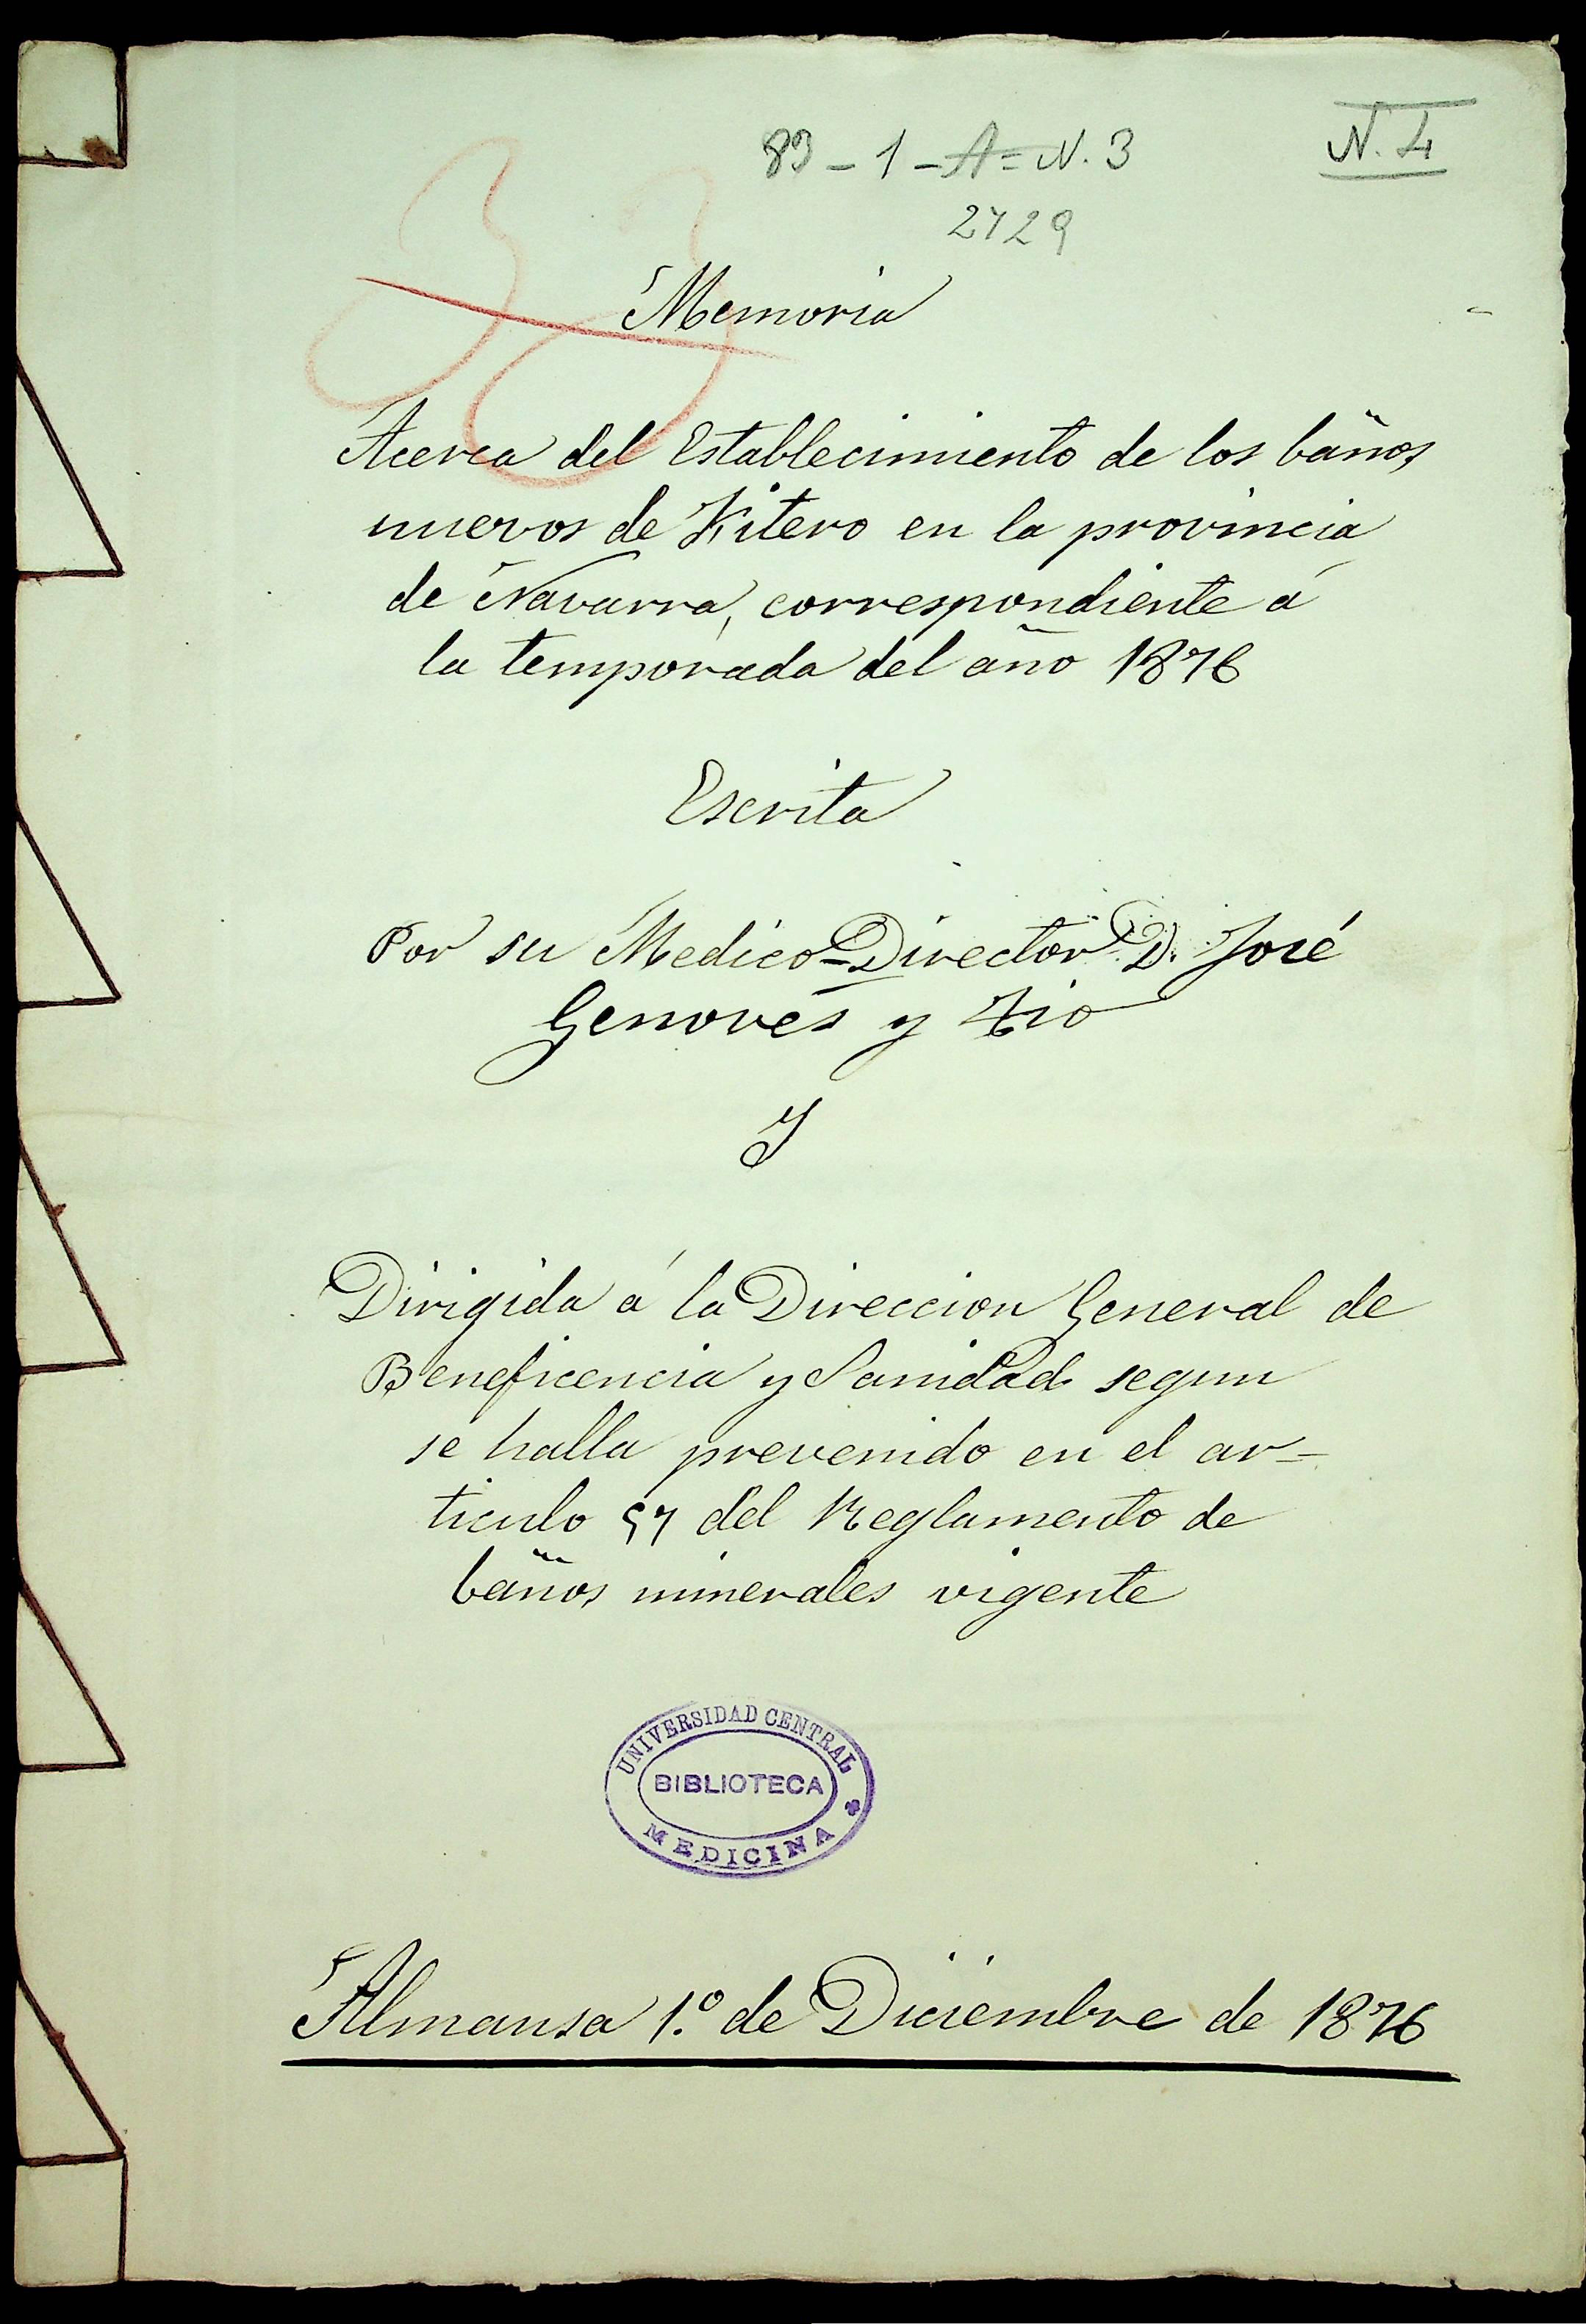 83 - 1 - A = N. 3
N. 4
2729
33
Memoria
Acerca del Establecimiento de los baños
nuevos de Fitero en la provincia
de Navarra, correspondiente á
la temporada del año 1876
Escrita
Por su Medico=Director D. José
Genovés y Tio
Y
Dirigida á la Direccion General de
Beneficencia y Sanidad segun
se halla prevenido en el ar=
ticulo 57 del Reglamento de
baños minerales vigente
UNIVERSIDAD CENTRAL
BIBLIOTECA
MEDICINA
Almansa 1.º de Diciembre de 1876